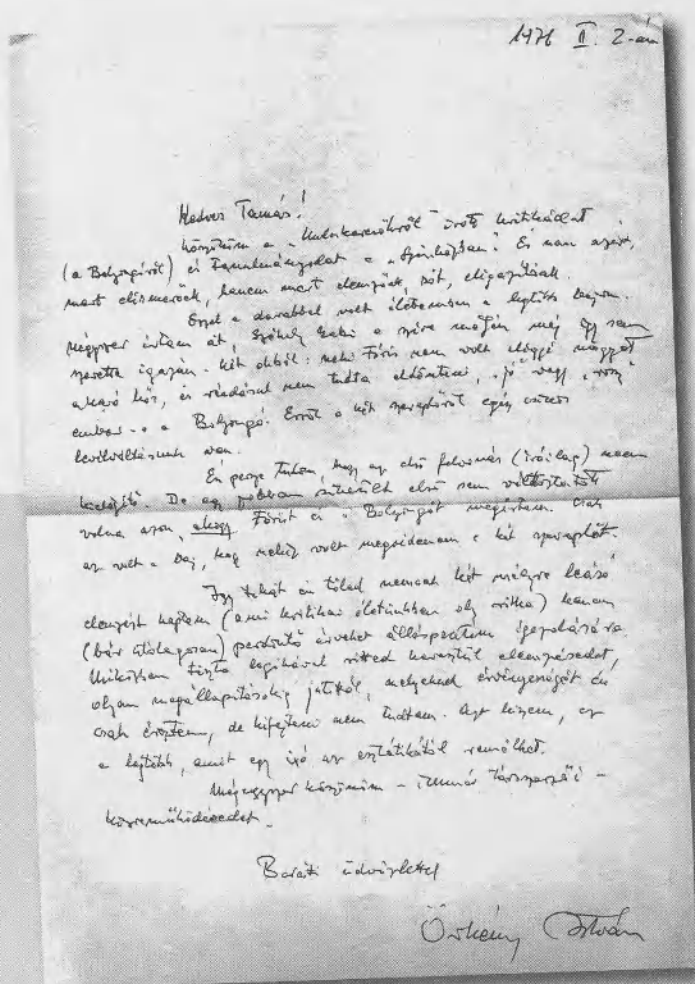 1976 II. 2-án
Kedves Tamás!
Köszönöm a "Kulcskeresőkről" írott kritikádat
(a Bolyongóról) és tanulmányodat a "Színházban". És nem azért,
mert elismerőek, hanem mert elemzőek, sőt, eligazítóak.
Ezzel a darabbal volt életemben a legtöbb bajom.
Négyszer írtam át, Székely Gabi a szíve mélyén még így sem
szerette igazán. Két okból: neki Fóris nem volt eléggé magyet
akaró hős, és ráadásul nem tudta eldönteni, "jó" vagy "rossz"
ember-e a Bolyongó. Erről a két szereplőről egész
levélváltásunk van.
Én persze tudom, hogy az első felvonás (íróilag) nem
kielégítő. De egy jobban sikerült első sem változtatott
volna azon, ahogy Fórist és a Bolyongót megírtam. Csak
az volt a baj, hogy nehéz volt megvédenem e két szereplőt.
Így tehát én tőled nemcsak két mélyre leásó
elemzést kaptam (ami kritikai életünkben oly ritka) hanem
(bár utólagosan) perdöntő érveket álláspontom igazolására.
Miközben tiszta logikával vitted keresztül elemzésedet,
olyan megállapításokig jutottál, melyeknek érvényességét én
csak éreztem, de kifejteni nem tudtam. Azt hiszem, ez
a legtöbb, amit egy író az esztétikától remélhet.
Mégegyszer köszönöm – immár társszerzői –
közreműködésedet.
Baráti üdvözlettel
Örkény István